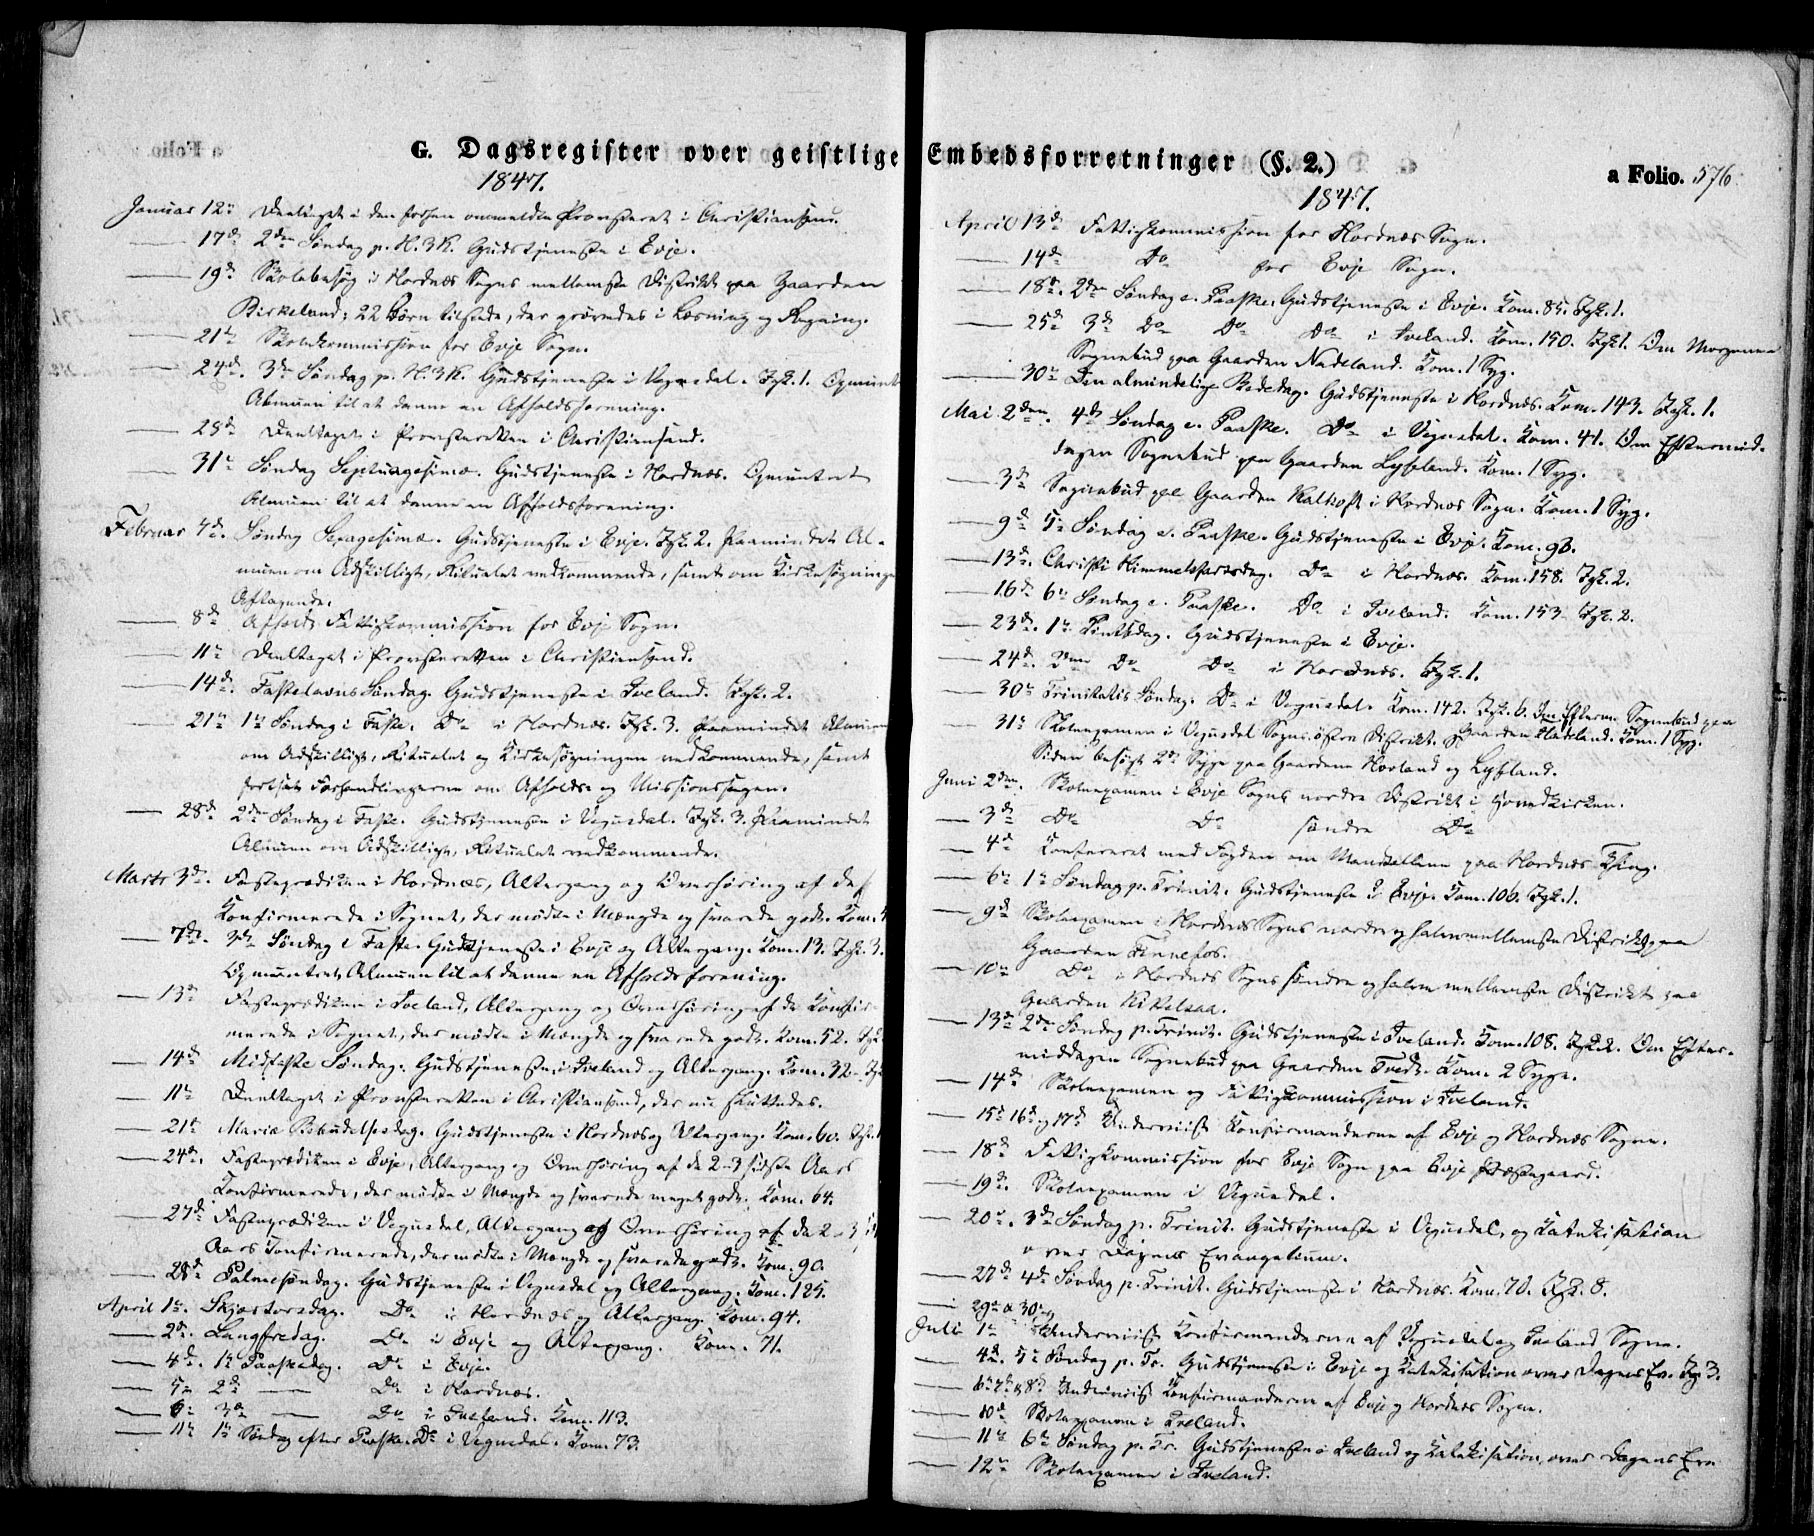 G. Dagsregister over geistlige Embedsforretninger (§. 2.)
a Folio. 576.
1847.
Januar 12te Deeltaget i den forhen ommeldte Provsteret i Christiansand.
17de 2den Søndag p. H. 3 K. Gudstjeneste i Evje.
19de Skolebesøg i Hordnæs Sogns mellemste District paa Gaarden
Birkeland; 22 Børn tilstede, der prøvedes i Læsning og Regning.
21de Skolekommission for Evje Sogn.
24de. 3die Søndag p. H. 3 K. Gudstjeneste i Vegusdal. Izt. 1. Opmuntr
Almuen til at danne en Afholdsforening.
28de Deeltaget i Provsteretten i Christiansand.
31te Søndag Septuagesimæ. Gudstjeneste i Hordnæs. Opmuntret
Almuen til at danne en Afholdsforening.
Februar 7de. Søndag Sexagesimæ. Gudstjeneste i Evje. Izt. 2. Paamindet Al-
muen om Adskilligt, Ritualet vedkommende, samt om Kirkesøgningens
Aftagende.
8de Afholdt Fattigkommission for Evje Sogn.
11te Deeltaget i Provsteretten i Christiansand.
14de. Fastelavns Søndag. Gudstjeneste i Iveland. Izt. 2.
21de 1ste Søndag i Faste. Do i Hordnæs. Izt. 3. Paamindet Almuen
om Adskilligt, Ritualet og Kirkesøgningen vedkommende, samt
fortsat Forhandlingerne om Afholds- og Missionssagen.
28de 2den Søndag i Faste. Gudstjeneste i Vegusdal. Izt. 3. Paamindet
Almuen om Adskilligt, Ritualet vedkommende.
Marts 3de. Fasteprædiken i Hordnæs, Altergang og Overhøring af de
Konfirmerede i Sognet, der mødte i Mængde og svarede godt. Kom.
7de. 3die Søndag i Faste. Gudstjeneste i Evje og Altergang. Kom. 13. Izt. 3.
Opmuntret Almuen til at danne en Afholdsforening.
13de Fasteprædiken i Iveland, Altergang og Overhøring af de Konfir-
merede i Sognet, der mødte i Mængde og svarede godt. Kom. 52. Izt.
14de Midfaste Søndag. Gudstjeneste i Iveland og Altergang. Kom. 32. Izt
11te Deeltaget i Provsteretten i Christiansand, der nu sluttedes.
21de Mariæ Bebudelsesdag. Gudstjeneste i Hordnæs og Altergang. Kom. 60. Izt.
24de. Fasteprædiken i Evje, Altergang og Overhøring af de 2-3 sidste Aars
Konfirmerede, der mødte i Mængde og svarede meget godt. Kom. 64.
27de Fasteprædiken i Vegusdal, Altergang og Overhøring af de 2-3
Aars Konfirmerede, der mødte i Mængde og svarede godt. Kom. 90.
28de Palmesøndag. Gudstjeneste i Vegusdal og Altergang. Kom. 125.
April 1te. Skjærtorsdag. Do i Hordnæs og Altergang. Kom. 94.
2de. Langfredag. Do i Evje og Altergang. Kom. 71.
4de. 1te Paaskedag. Do i Evje.
5te 2de Do i Hordnæs.
6te 3de Do i Iveland. Kom. 113.
11te 1te Søndag efter Paaske. Do i Vegusdal. Kom. 73.
1847.
April 13de Fattigkommission for Hordnæs Sogn.
14de Do for Evje Sogn.
18de. 2den Søndag e. Paaske. Gudstjeneste i Evje. Kom. 85. Izt. 1.
25de 3de Do Do Do i Iveland. Kom. 150. Izt. 1. Om Morgenen
Sognebud paa Gaarden Nateland. Kom. 1 Syg.
30te Den almindelige Bededag. Gudstjeneste i Hordnæs. Kom. 143. Izt. 1.
Mai 2den. 4de Søndag e. Paaske. Do i Vegusdal. Kom. 41. Om Eftermid-
dagen Sognebud paa Gaarden Lyseland. Kom. 1 Syg.
3de Sognebud paa Gaarden Kalhoft i Hordnæs Sogn. Kom. 1 Syg.
9de 5te Søndag e. Paaske. Gudstjeneste i Evje. Kom. 93.
13de. Christi Himmelfartsdag. Do i Hordnæs. Kom. 158. Izt. 2.
16de 6te Søndag e. Paaske. Do i Iveland. Kom. 153. Izt. 2.
23de. 1te Pintsdag. Gudstjeneste i Evje.
24de. 2den Do Do i Hordnæs. Izt. 1.
30te Trinitatis Søndag. Do i Vegusdal. Kom. 142. Izt. 6. Om Efterm. Sognebud paa
Gaarden Hadeland. Kom. 1 Syg.
31te Skoleexamen i Vegusdal Sogns østre District.
Siden besøgt 2de Syge paa Gaardene Hovland og Lyseland.
Juni 2den. Skoleexamen i Evje Sogns nordre District i Hovedkirken.
3de Do Do søndre Do
4de Confereret med Fogden om Mandtallene paa Hordnæs Thing.
6te 1te Søndag p. Trinit. Gudstjeneste i Evje. Kom. 106. Izt. 1.
9de Skoleexamen i Hordnæs Sogns nordre og halve mellemste District paa
Gaarden Fennefos.
10de Do i Hordnæs Sogns søndre og halve mellemste District paa
Gaarden Kikelsaa.
13de 2den Søndag p. Trinit. Gudstjeneste i Iveland. Kom. 108. Izt. 2. Om Efter-
middagen Sognebud paa Gaarden Tveit. Kom. 2 Syge.
14de Skoleexamen og Fattigkommission i Iveland.
15de 16de og 17de Underviist Konfirmanderne af Evje og Hordnæs Sogne.
18de Fattigkommission for Evje Sogn paa Evje Præstegaard.
19de. Skoleexamen i Vegusdal.
20de. 3de Søndag p. Trinit. Gudstjeneste i Vegusdal, og Katekisation
over Dagens Evangelium.
27de 4de Søndag p. Trinit. Gudstjeneste i Hordnæs. Kom. 70. Izt. 8.
29de & 30te
Juli 1te Underviist Konfirmanderne af Vegusdal og Iveland Sogne.
4de. 5te Søndag p. Tr. Gudstjeneste i Evje og Katekisation over Dagens Ev. Izt. 3.
6te 7de & 8de Underviist Konfirmanderne af Evje og Hordnæs Sogne.
10de Skoleexamen i Iveland.
11te 6te Søndag p. Tr. Gudstjeneste i Iveland og Katekisation, over Dagens Eva
12te Skoleexamen i Iveland.